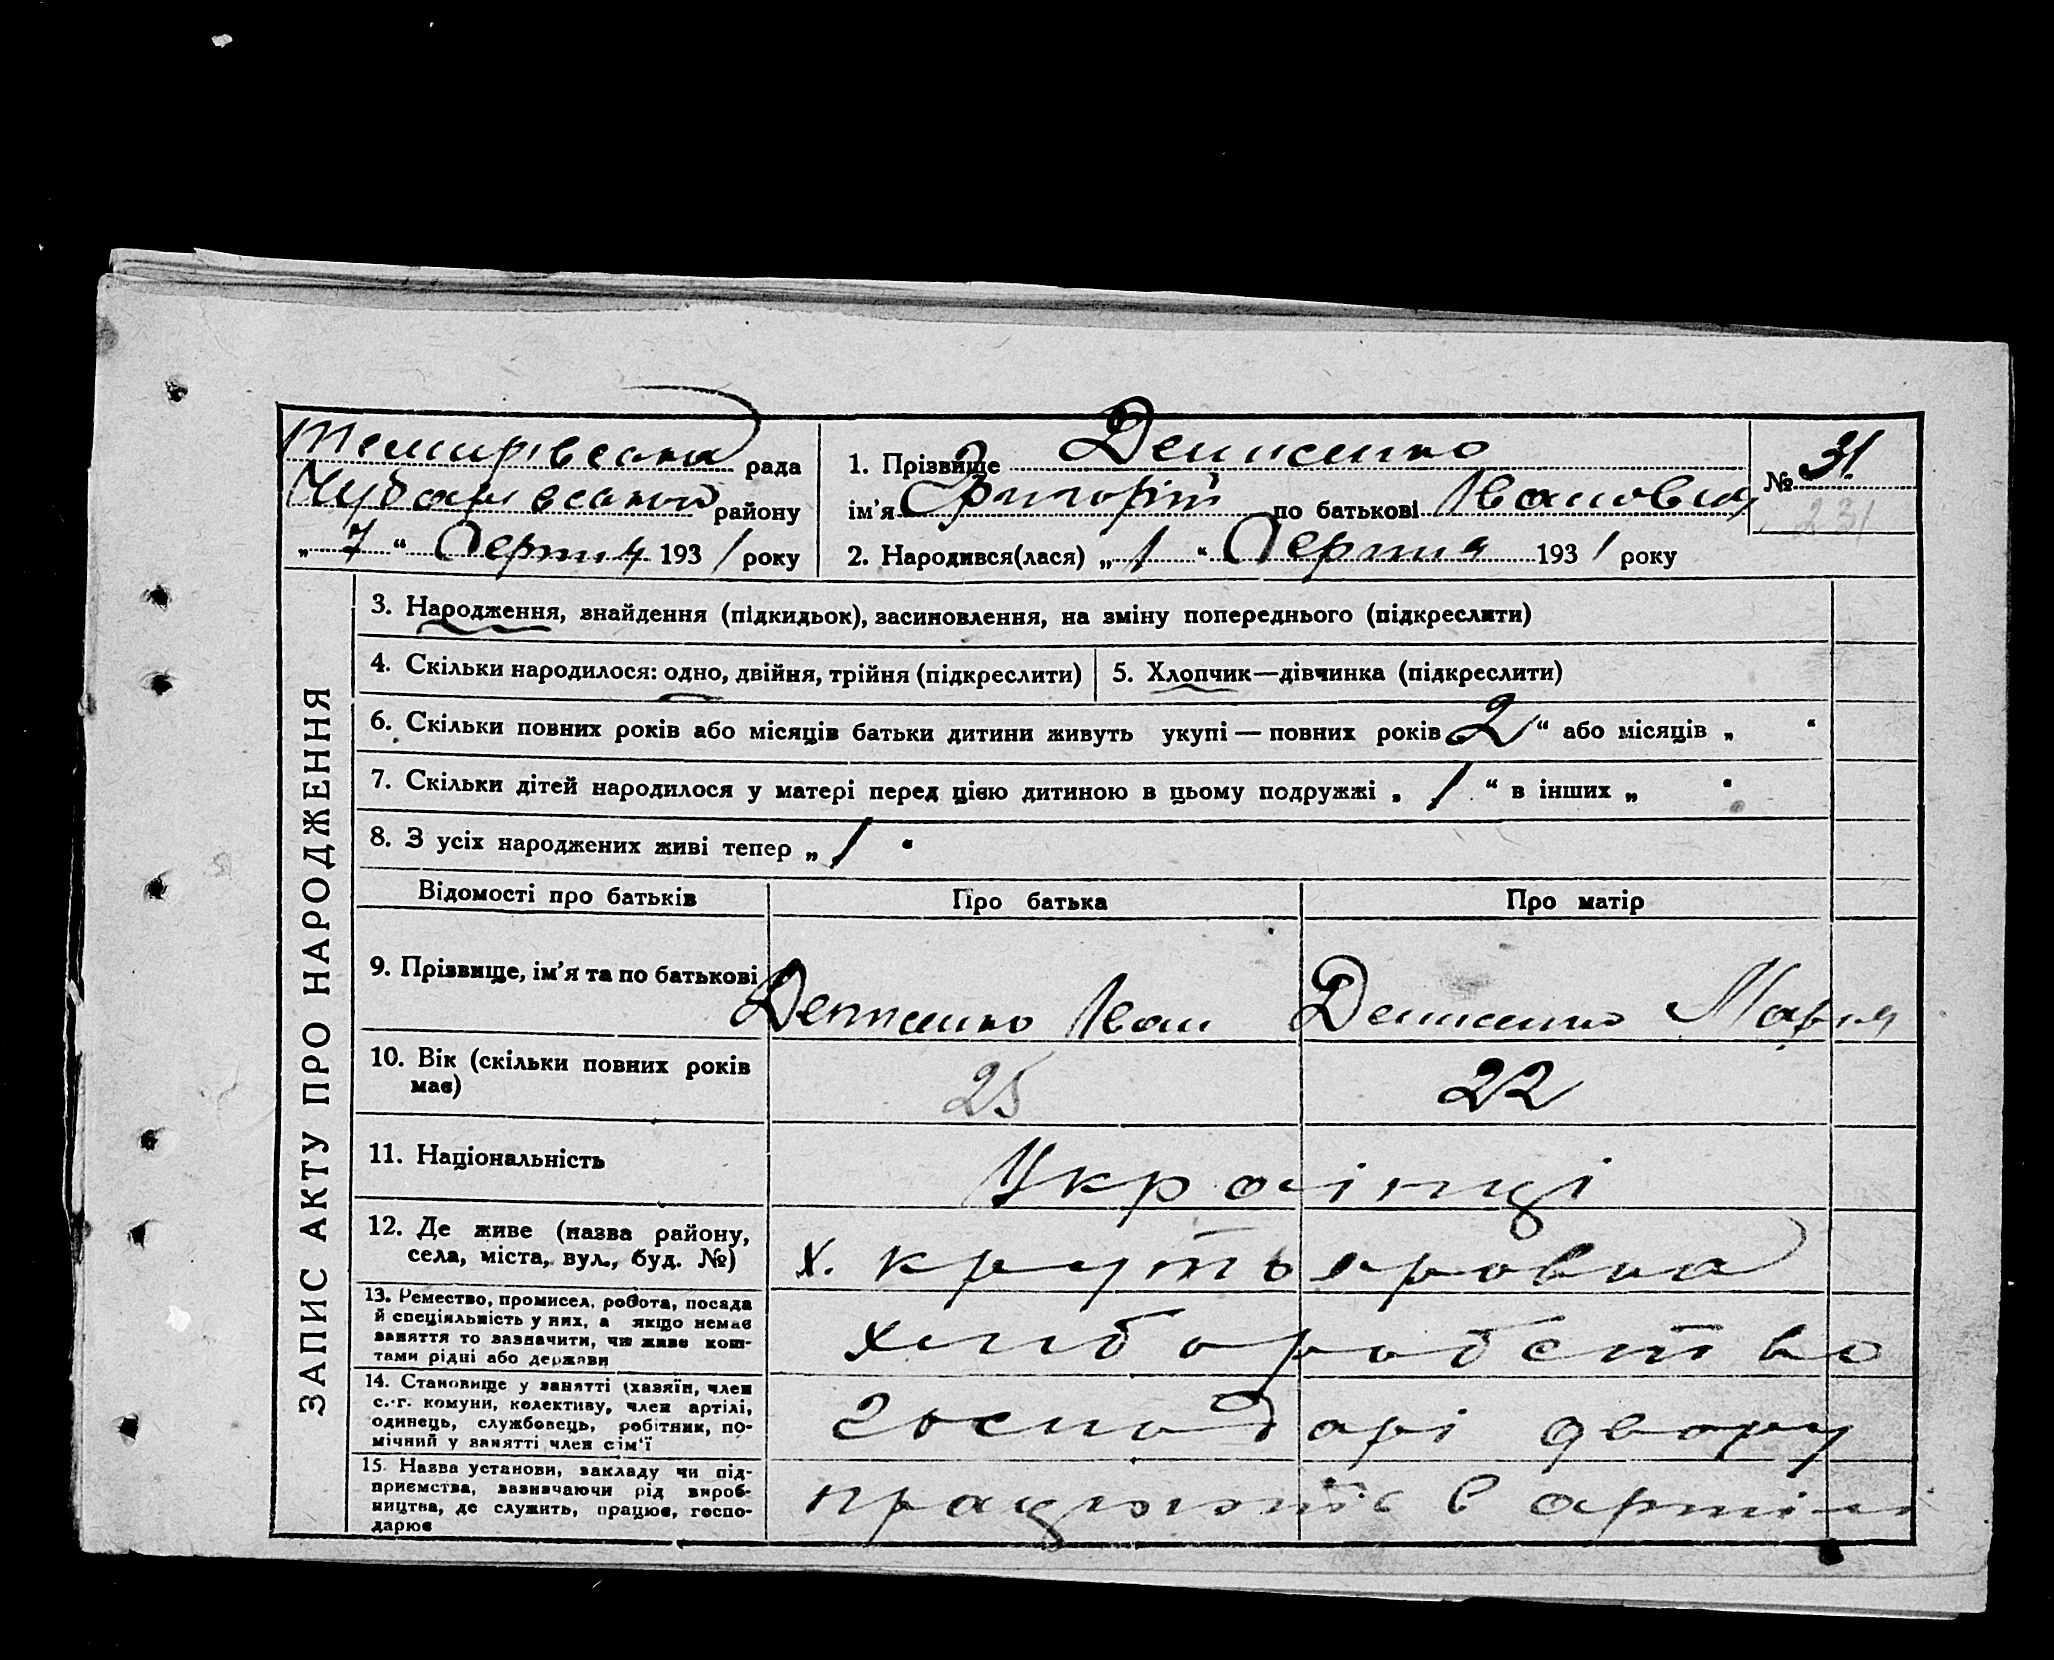 Темирівська рада
Чубарівський району
„ 7 “ Серпня 193 1 року
1. Прізвище Денисенко
ім'я Григорій по батькові Іванович
№ 31.
231
2. Народився(лася) „ 1 “ Серпня 193 1 року
ЗАПИС АКТУ ПРО НАРОДЖЕННЯ
3. Народження, знайдення (підкидьок), засиновлення, на зміну попереднього (підкреслити)
4. Скільки народилося: одно, двійня, трійня (підкреслити)
5. Хлопчик—дівчинка (підкреслити)
6. Скільки повних років або місяців батьки дитини живуть укупі — повних років 2 “ або місяців „ “
7. Скільки дітей народилося у матері перед цією дитиною в цьому подружжі „ 1 “ в інших „ “
8. З усіх народжених живі тепер „ 1 “
Відомості про батьків Про батька Про матір
9. Прізвище, ім'я та по батькові Денисенко Іван Денисенко Мария
10. Вік (скільки повних років
має)
25 22
11. Національність Українці
12. Де живе (назва району,
села, міста, вул., буд. №)
х. крутьяровка
13. Ремество, промисел, робота, посада
й спеціяльність у них, а якщо немає
заняття то зазначити, чи живе кош-
тами рідні або держави
хліборобство
14. Становище у занятті (хазяїн, член
с.-г. комуни, колективу, член артілі,
одинець, службовець, робітник, по-
мічний у занятті член сім'ї
господарі двору
15. Назва установи, закладу чи під-
приємства, зазначаючи рід вироб-
ництва, де служить, працює, госпо-
дарює
працюють в артілі